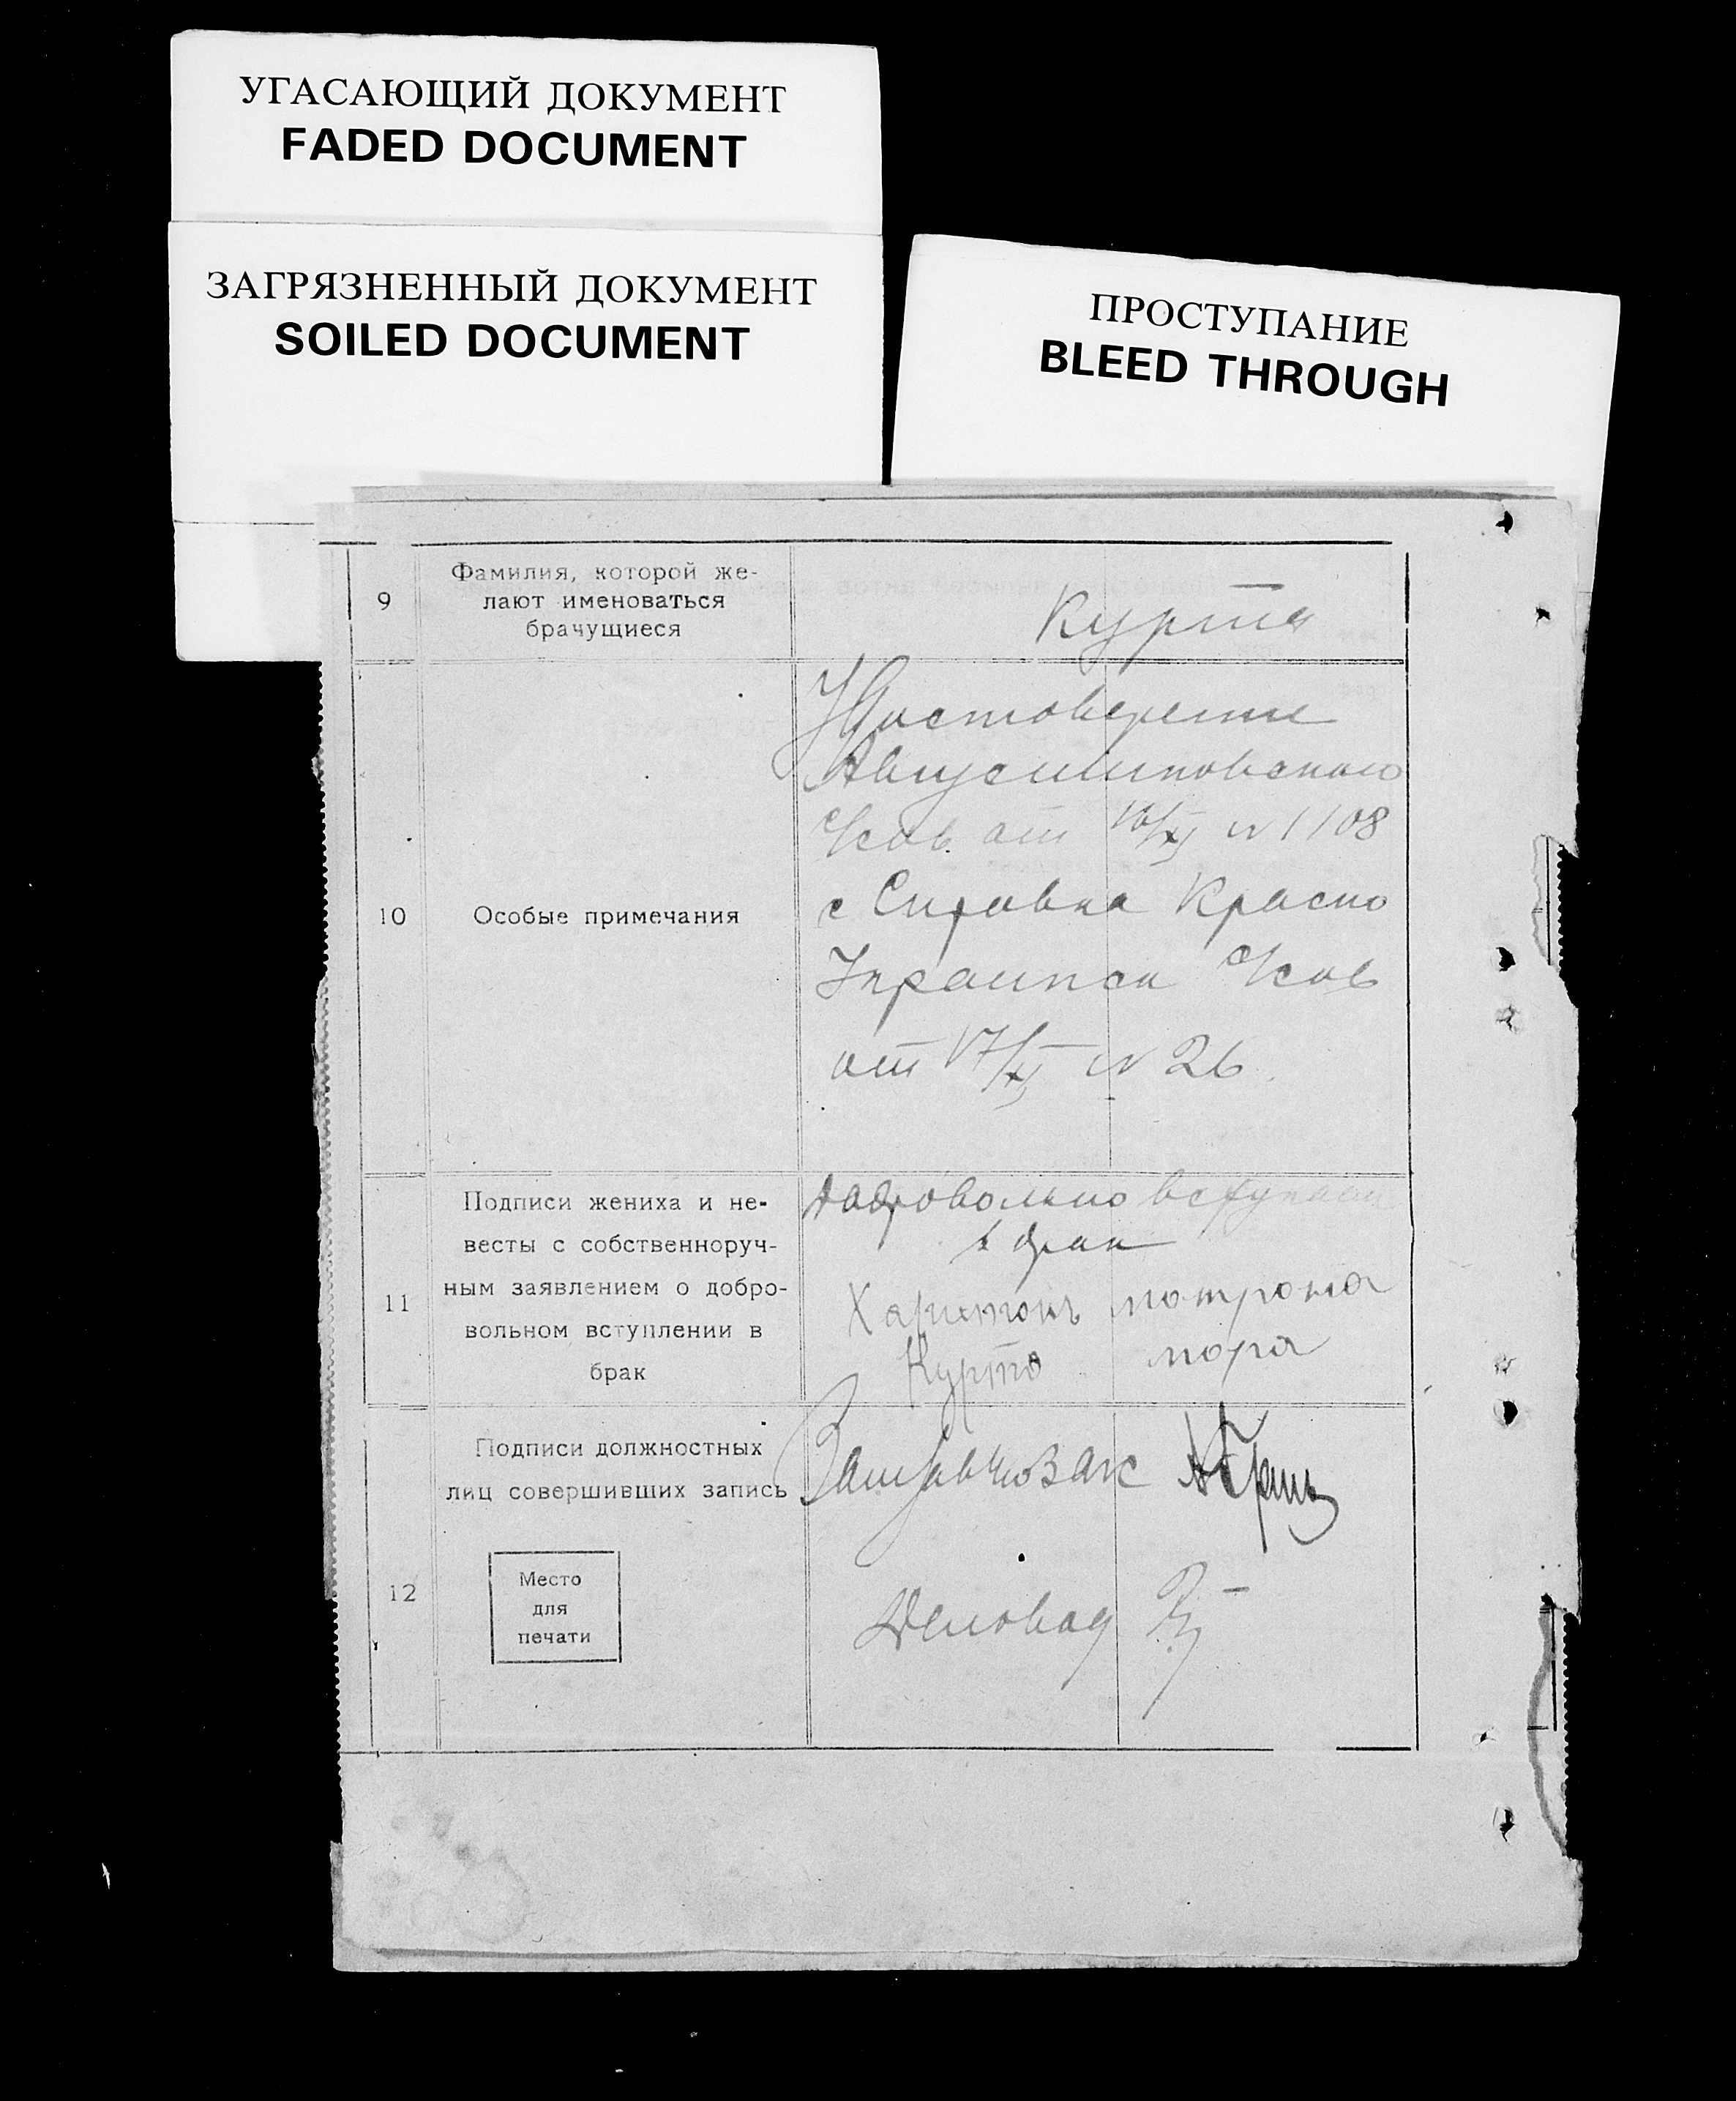 УГАСАЮЩИЙ ДОКУМЕНТ
FADED DOCUMENT
ЗАГРЯЗНЕННЫЙ ДОКУМЕНТ
SOILED DOCUMENT
ПРОСТУПАНИЕ
BLEED THROUGH
9
Фамилия, которой же-
лают именоваться
брачущиеся
Курта
10
Особые примечания
Удостоверение
Августиновского
от 16/XI № 1108
с Справка Красно
Украинск
от 17/XI № 26
11
Подписи жениха и не-
весты с собственноруч-
ным заявлением о добро-
вольном вступлении в
брак
Добровольно вступаем
в брак
Харитонъ
Курта
мотрона
мора
12
Подписи должностных
лиц совершивших запись
Место
для
печати
Деловод